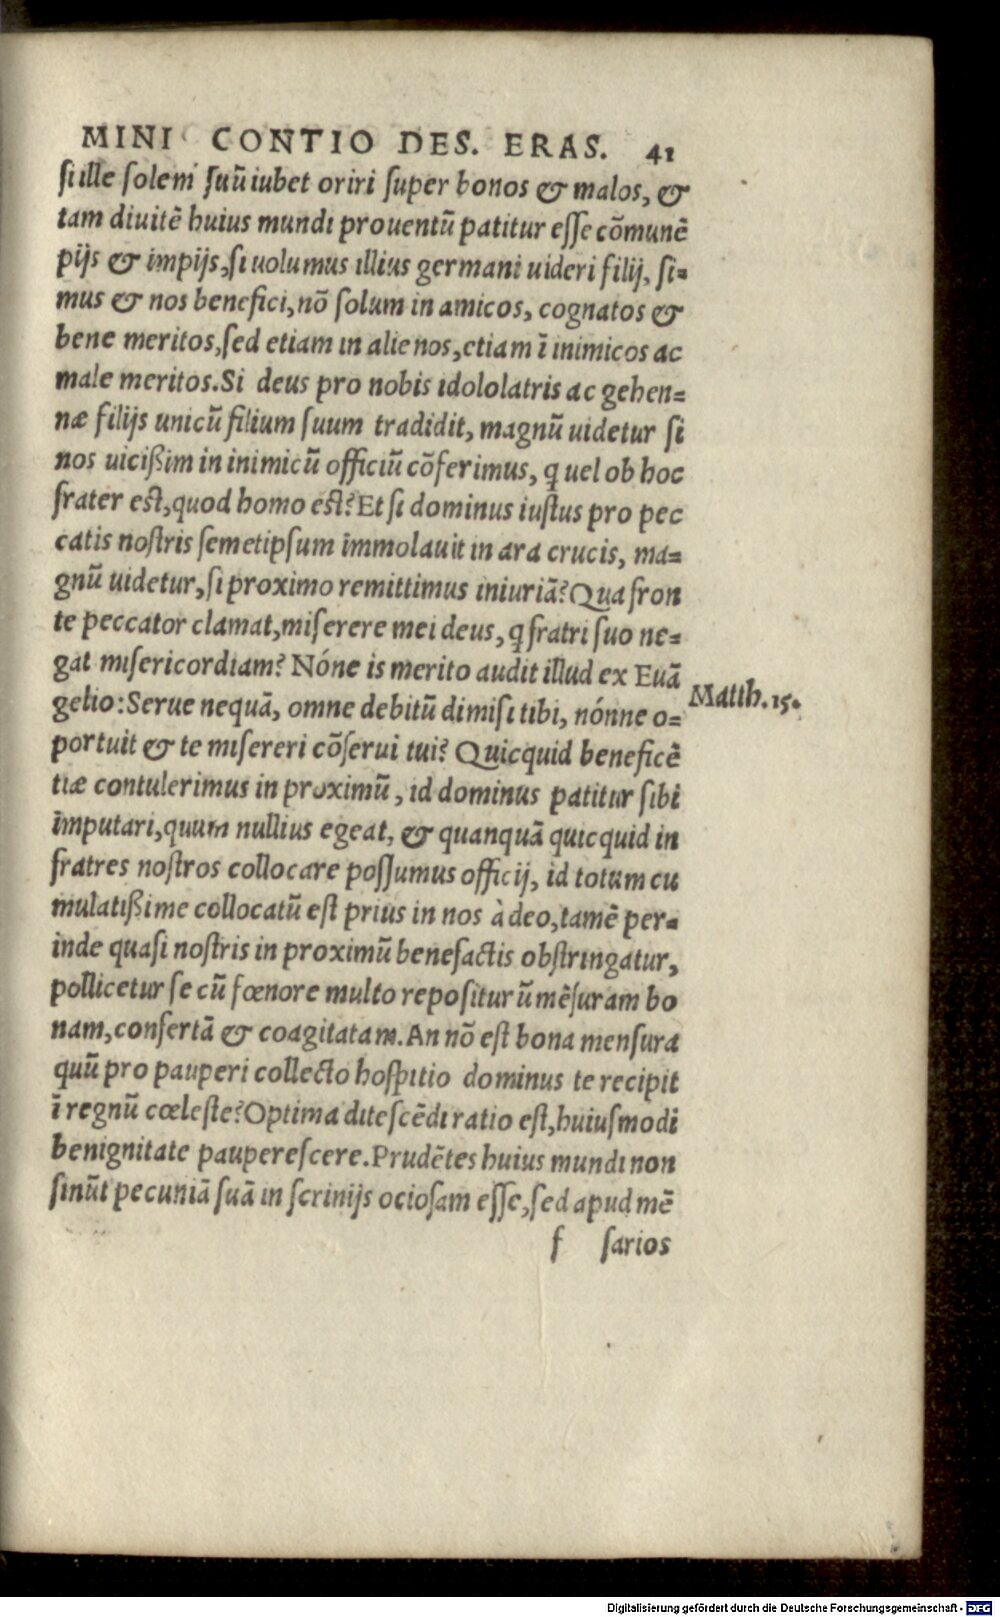 MINI CONTIO DES. ERAS. 41
ſi ille ſolem ſuū iubet oriri ſuper bonos & malos, &
tam diuitē huius mundi prouentū patitur eſſe cōmunē
pijs & impijs, ſi uolumus illius germani uideri filij, ſi=
mus & nos benefici, nō ſolum in amicos, cognatos &
bene meritos, ſed etiam in alienos, etiam ī inimicos ac
male meritos. Si deus pro nobis idololatris ac gehen=
næ filijs unicū filium ſuum tradidit, magnū uidetur ſi
nos uicißim in inimicū officiū cōferimus, q uel ob hoc
frater eſt, quod homo eſt? Et ſi dominus iuſtus pro pec
catis noſtris ſemetipſum immolauit in ara crucis, ma=
gnū uidetur, ſi proximo remittimus iniuriā? Qua fron
te peccator clamat, miſerere mei deus, q fratri ſuo ne=
gat miſericordiam? Nónne is merito audit illud ex Euā
gelio: Serue nequā, omne debitū dimiſi tibi, nónne o=
Matth. 15.
portuit & te miſereri cōſerui tui? Quicquid beneficē
tiæ contulerimus in proximū, id dominus patitur ſibi
imputari, quum nullius egeat, & quanquā quicquid in
fratres noſtros collocare poſſumus officij, id totum cu
mulatißime collocatū eſt prius in nos à deo, tamē per=
inde quaſi noſtris in proximū benefactis obſtringatur,
pollicetur ſe cū fœnore multo repoſiturū mēſuram bo
nam, confertā & coagitatam. An nō eſt bona menſura
quū pro pauperi collecto hoſpitio dominus te recipit
ī regnū cœleſte? Optima diteſcēdi ratio eſt, huiuſmodi
benignitate pauperescere. Prudētes huius mundi non
ſinūt pecuniā ſuā in ſcrinijs ocioſam eſſe, ſed apud mē
f ſarios
Digitalisierung gefördert durch die Deutsche Forschungsgemeinschaft - DFG